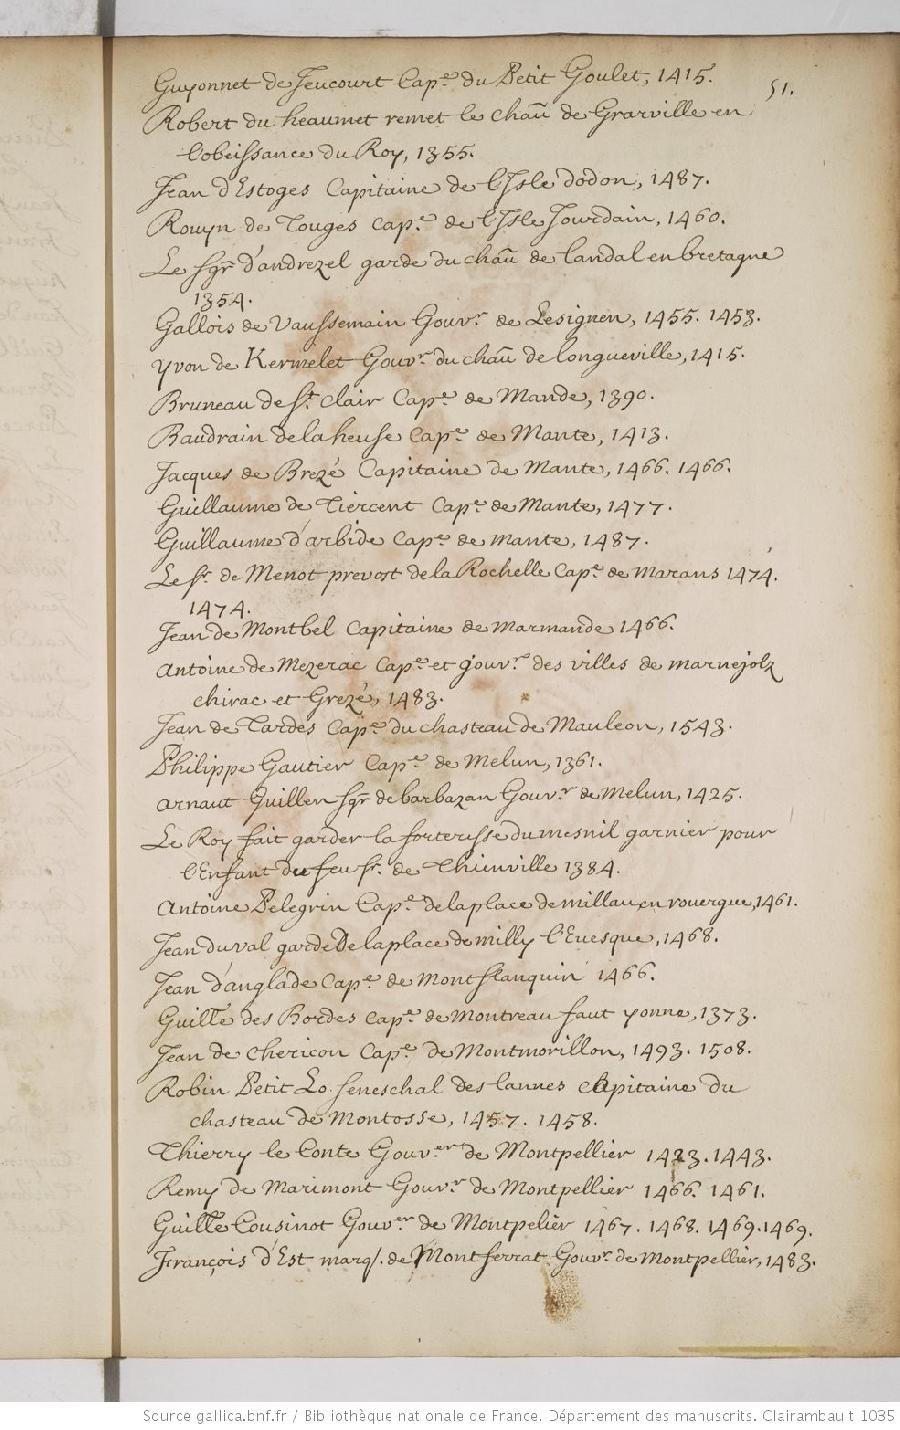 51.
Guyonnet de Jeucourt Cap.e du Petit Goulet, 1415.
Robert du heaumet remet le chau de Grarville en
l'obeissance du Roy, 1355.
Jean d'Estoges Capitaine de l'Isle dodon, 1487.
Rouyn de Touges cap.e de l'Isle Jourdain, 1460.
Le sgr d'andrezel garde du chau de landal en bretagne
1354.
Gallois de Vaussemain Gouv.r de Lesignen, 1455. 1453.
yvon de Kermelet Gouv.r du chau de longueville, 1415.
Bruneau de St. clair Cap.e de Mande, 1390.
Baudrain de la heuse Cap.e de Mante, 1413.
Jacques de Brezé Capitaine de Mante, 1466. 1466.
Guillaume de Tiercent Cap.e de Mante, 1477.
Guillaume d'arbide Cap.e de mante, 1487.
Le Sr. de Menot prevost de la Rochelle Cap.e de Marans 1474.
1474.
Jean de Montbel Capitaine de Marmande 1466.
Antoine de Mezerac Cap.e et gouv.r des villes de marnejolz
chirac et Grezé, 1483.
Jean de Tardes Cap.e du chasteau de Mauleon, 1543.
Philippe Gautier Cap.e de Melun, 1361.
arnaut Guillen sgr de barbazan Gouv.r de Melun, 1425.
Le Roy fait garder la forteresse du mesnil garnier pour
l'Enfant du feu sr. de Thunville 1384.
Antoine Pelegrin Cap.e de la place de millau en rouergue, 1461.
Jean du val garde de la place de milly l'Euesque, 1468.
Jean d'anglade Cap.e de Montflanquin 1466.
Guille des Bordes cap.e de Montreau faut yonne, 1373.
Jean de chericon Cap.e de Montmorillon, 1493. 1508.
Robin Petit Lo seneschal des lannes capitaine du
chasteau de Montosse, 1457. 1458.
Thierry le Conte Gouv.er de Montpellier 1423. 1443.
Remy de Marimont Gouv.r de Montpellier 1466. 1461.
Guille Cousinot Gouv.er de Montpelier 1467. 1468. 1469. 1469.
François d'Est marq. de Montferrat Gouv.r de Montpellier, 1483.
Source gallica.bnf.fr / Bibliothèque nationale de France. Département des manuscrits. Clairambault 1035